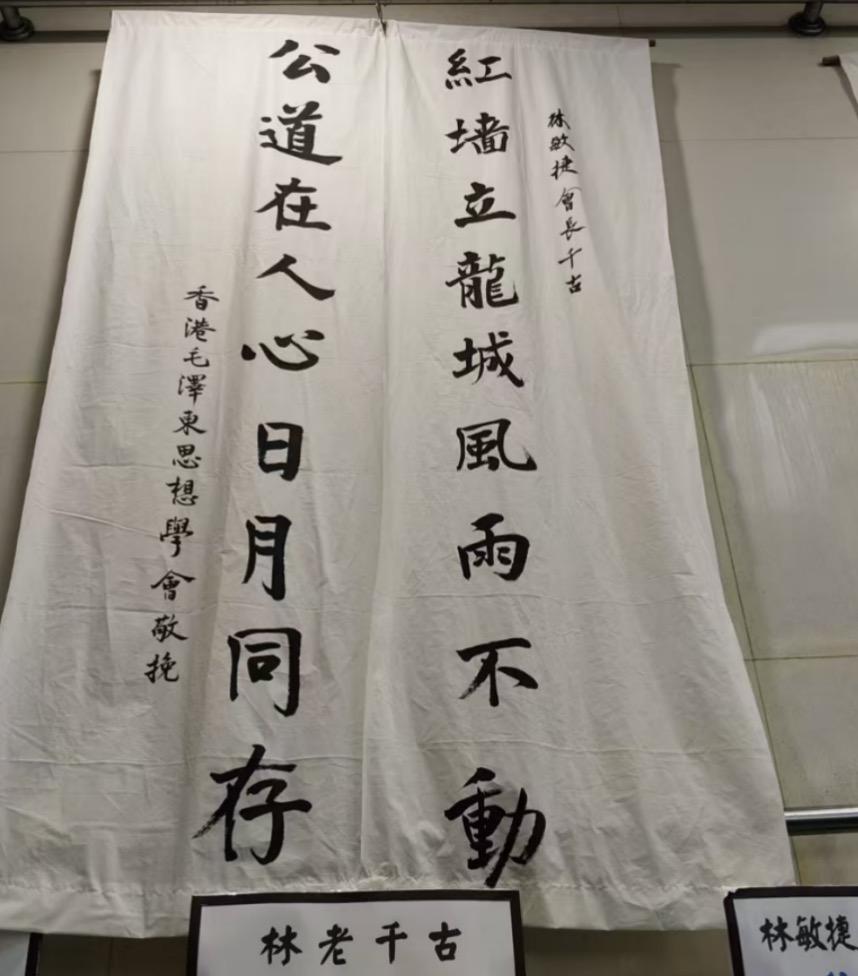 林敏捷會長千古
紅墙立龍城風雨不動
公道在人心日月同存
香港毛澤東思想學會敬挽
林老千古
林敏捷